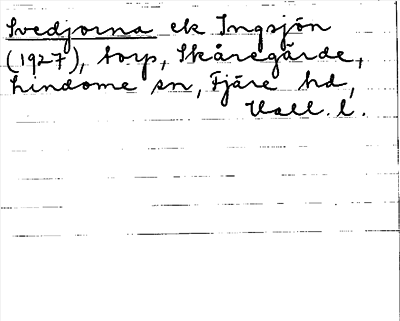 Svedjorna ek Ingsjön
(1927), torp, Skåregärde,
Lindome sn, Fjäre hd,
Hall. l.